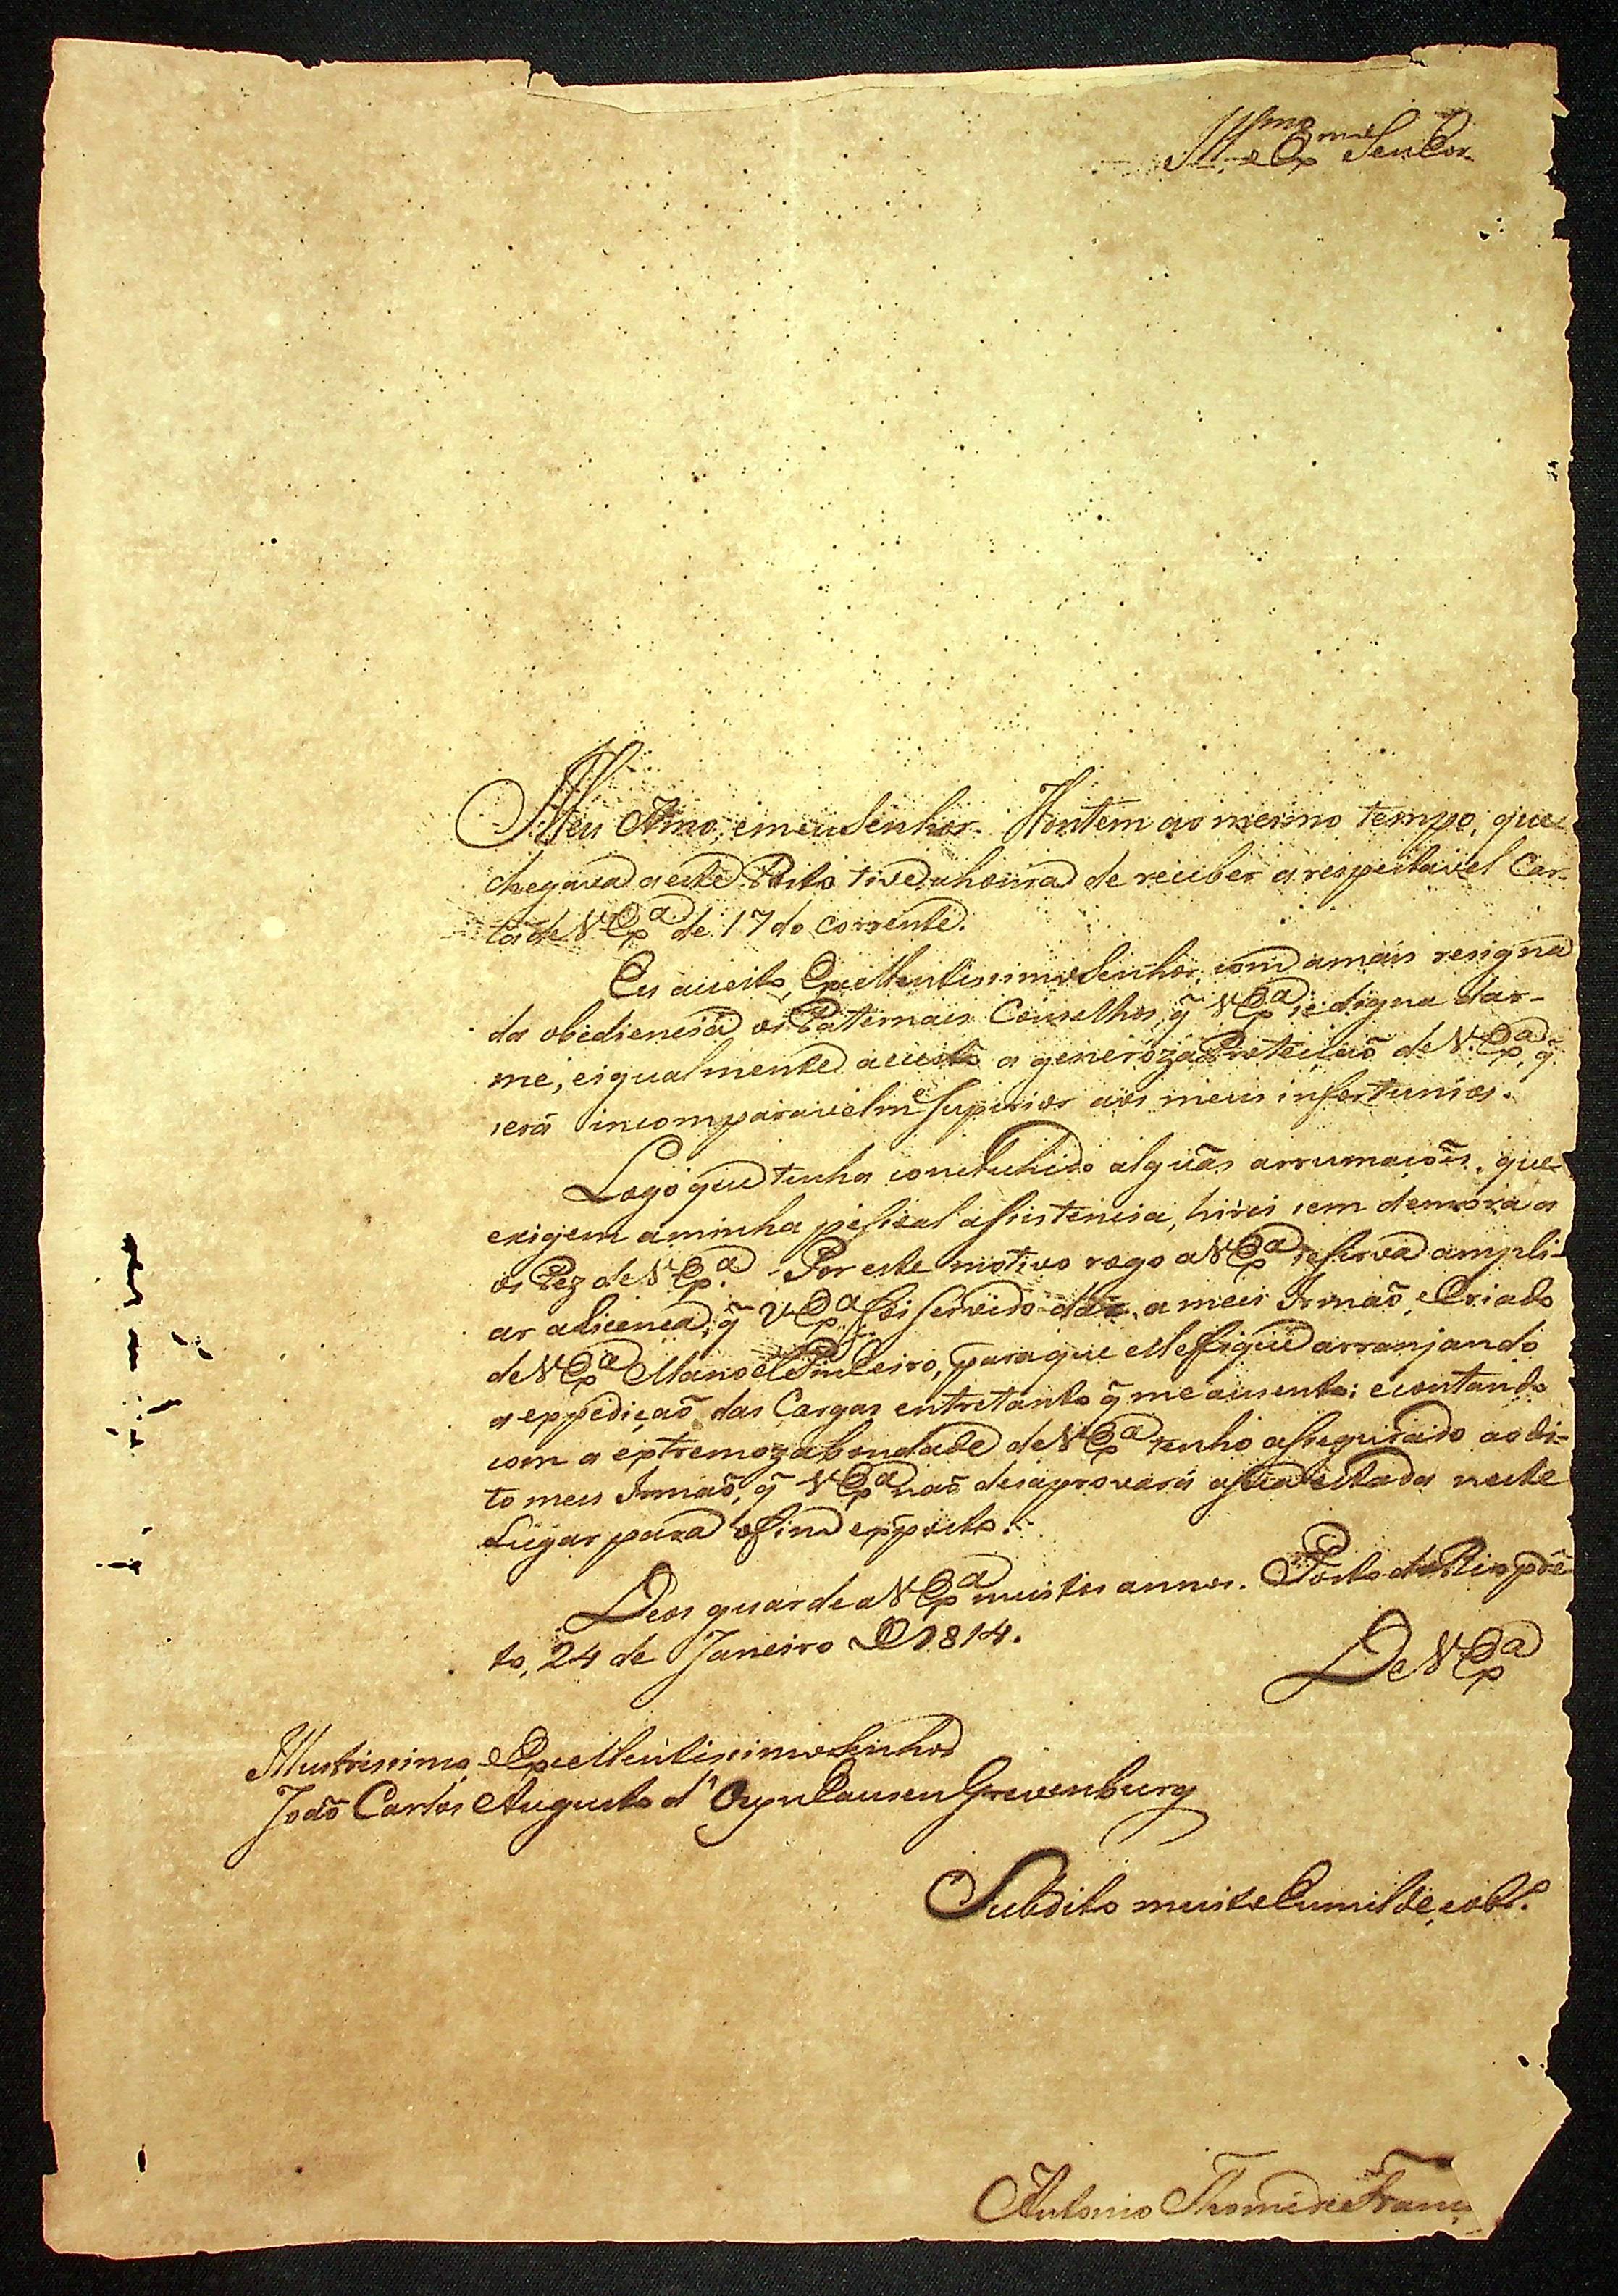 Ill.mo e Ex.mo Senhor
Meu Amo, e meu Senhor. Hontem ao mesmo tempo, que
chegava a este Porto tive a honra de receber a respeitavel Car-
ta de V Ex.a de 17 do corrente.
Eu aceito, Excellentissimo Senhor, com a mais resigna
da obediencia os Paternais Conselhos, q̃ V Ex.a se digna dar-
me, e igualmente aceito a generoza Protecçaõ de V. Ex.a, q̃
será incomparavelm.e superior aos meus infortunios.
Logo que tenha concluhido alguãs arrumaçoẽs, que
exigem a minha pesoal assistencia, hirei sem demora a
os Pez de V Ex.a. Por este motivo rogo a V Ex.a se sirva ampli-
ar a licença, q̃ V Ex.a foi servido dar a meu Irmaõ, e Criado
de V Ex.a Manoel Pinheiro, para que elle fique arranjando
a expediçaõ das Cargas entretanto q̃ me ausento; e contando
com a extremoza bondade de V Ex.a tenho assegurado ao di-
to meu Irmaõ, q̃ V Ex.a naõ desaprovará a sua estada neste
Lugar para o fim exposto.
Deos guarde a V Ex.a muitos annos. Porto do Rio prê
to, 24 de Janeiro D 1814.
De V Ex.a
Illustrissimo e Excellentissimo Senhor
Joaõ Carlos Augusto d' Oeynhausen Grevenburg
Subdito muito humilde, e obr.
Antonio Thome de Franç